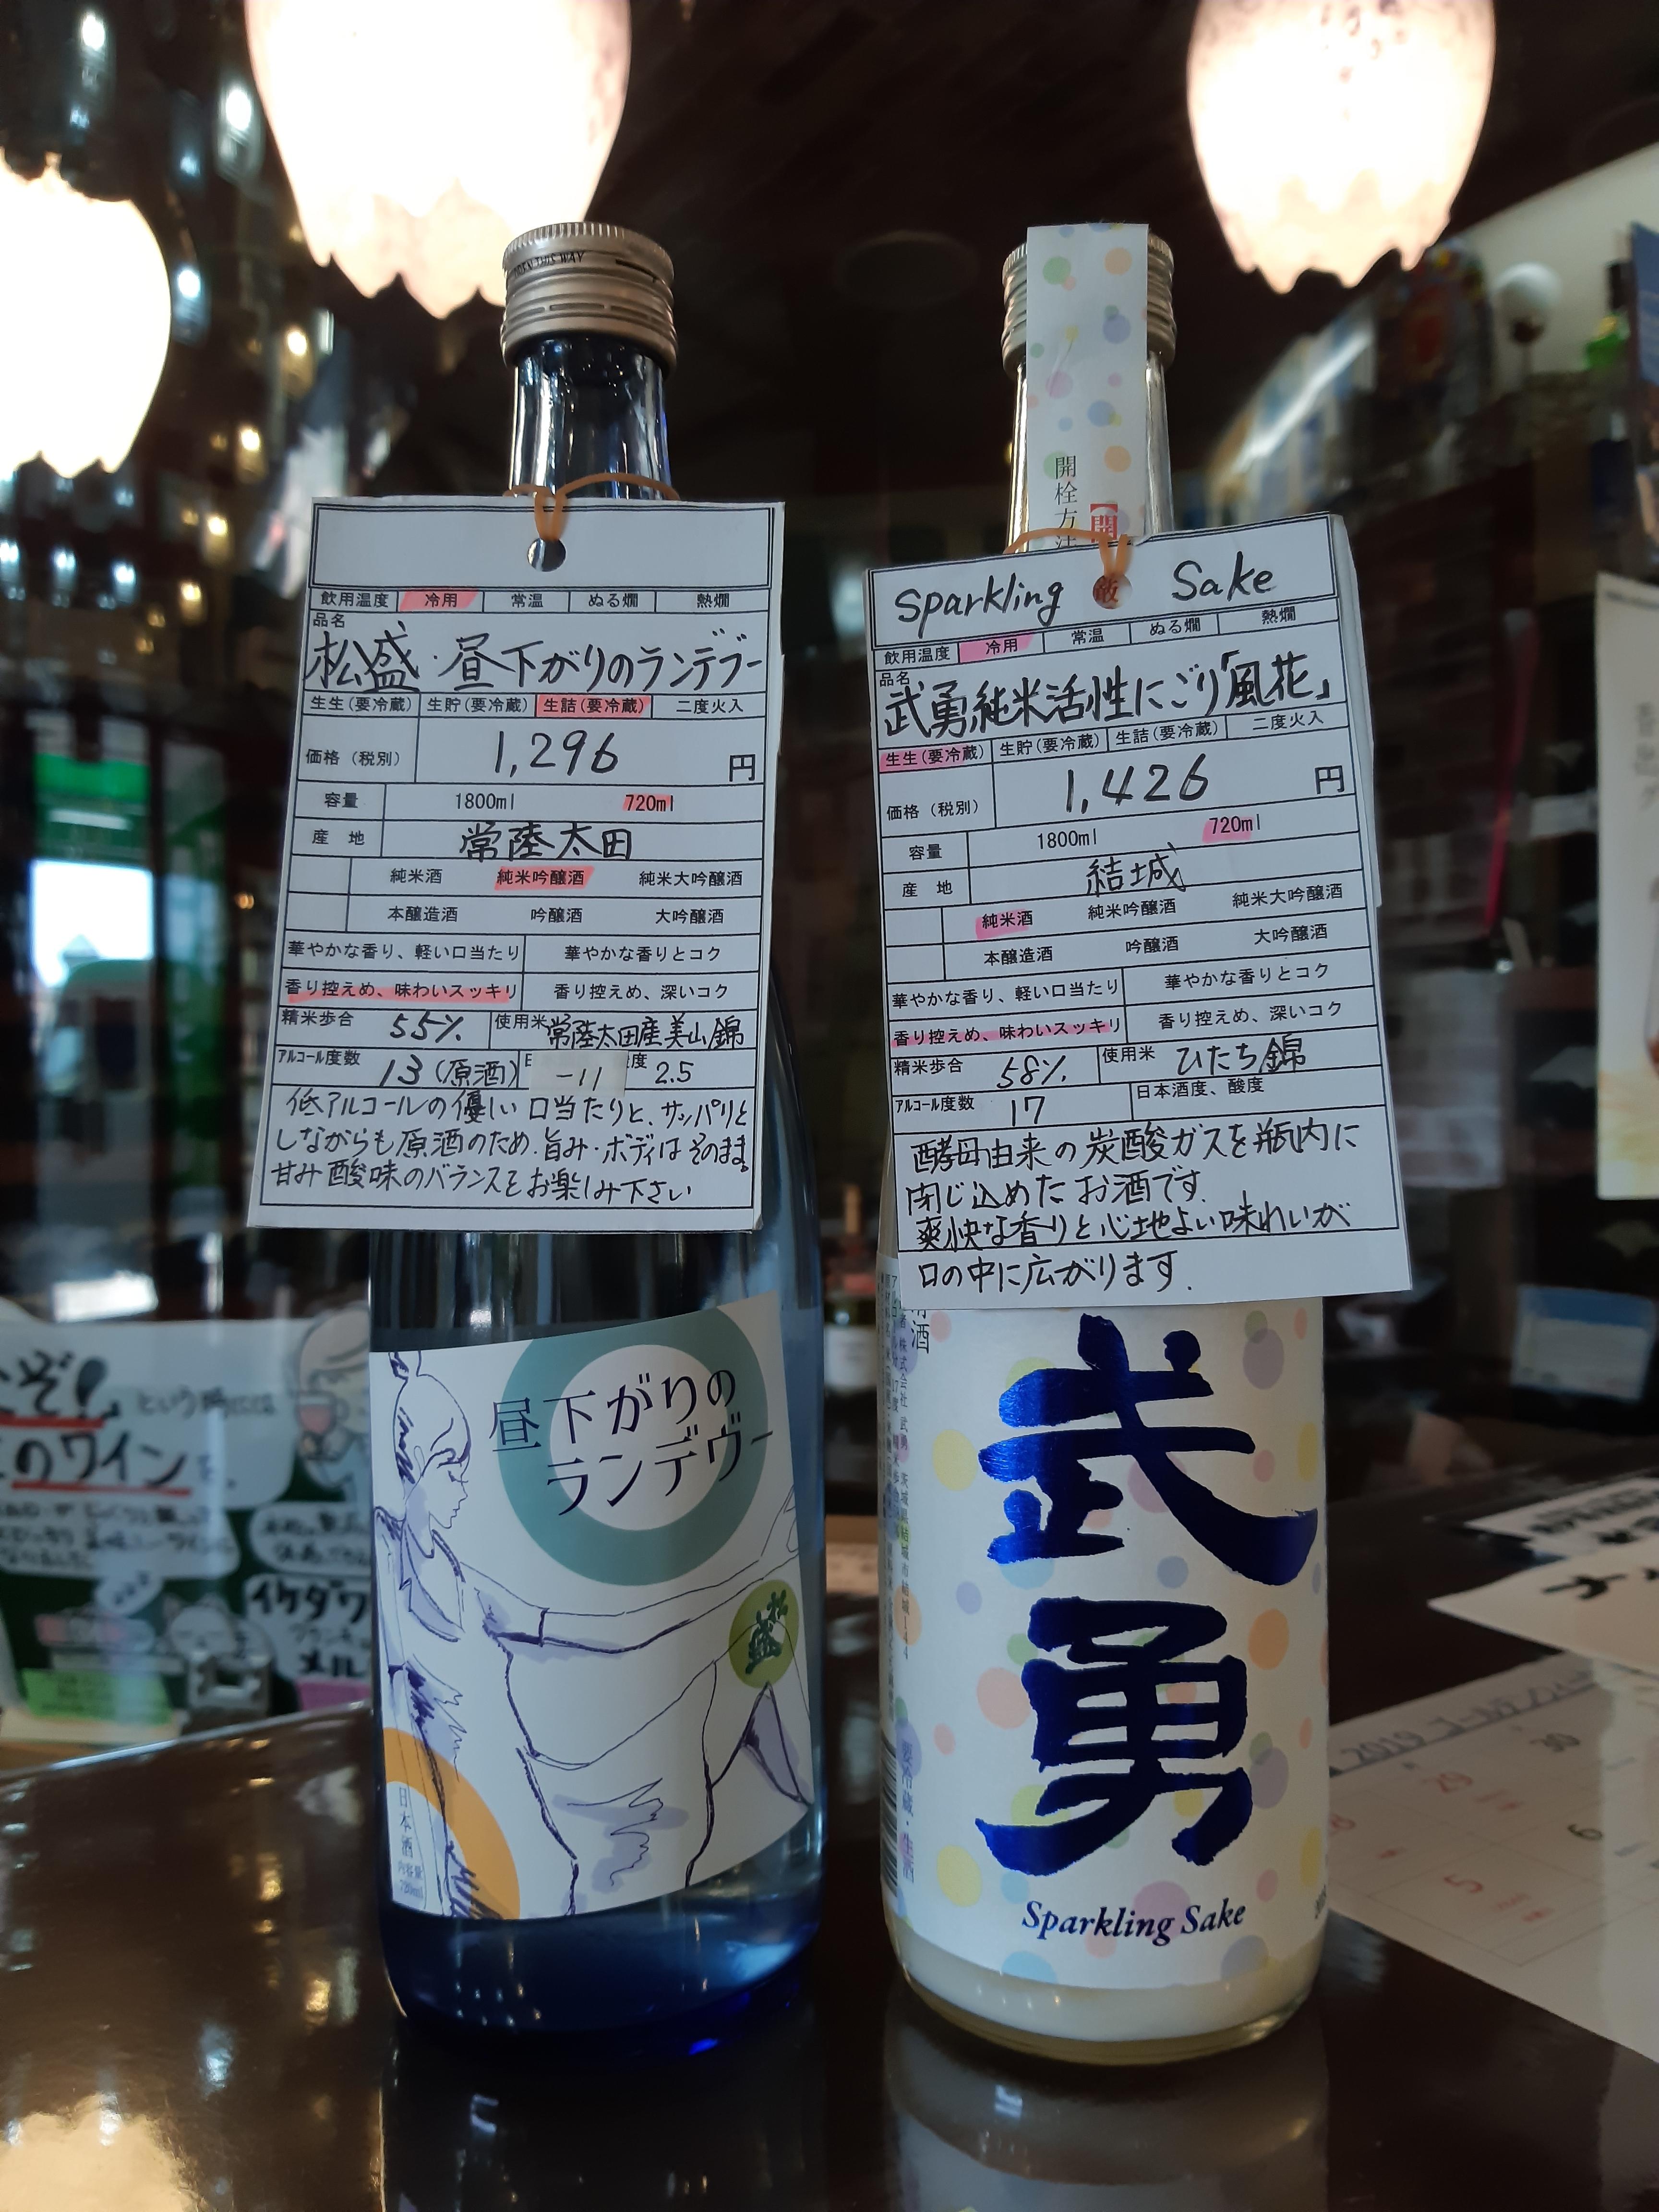 OPEN THIS WAY
飲用温度 冷用 常温 ぬる燗 熱燗
品名
松盛・昼下がりのランデブー
生生(要冷蔵) 生貯(要冷蔵) 生詰(要冷蔵) 二度火入
価格(税別) 1,296 円
容量 1800ml 720ml
産 地 常陸太田
純米酒 純米吟醸酒 純米大吟醸酒
本醸造酒 吟醸酒 大吟醸酒
華やかな香り、軽い口当たり 華やかな香りとコク
香り控えめ、味わいスッキリ 香り控えめ、深いコク
精米歩合 55% 使用米 常陸太田産美山錦
アルコール度数 13(原酒) -11 度 2.5
低アルコールの優しい口当たりと、サッパリと
しながらも原酒のため、旨み・ボディはそのまま。
甘み酸味のバランスをお楽しみ下さい
昼下がりの
ランデヴー
松盛
日本酒
内容量
720ml
開栓方法
Sparkling Sake
飲用温度 冷用 常温 ぬる燗 熱燗
品名
武勇純米活性にごり「風花」
生生(要冷蔵) 生貯(要冷蔵) 生詰(要冷蔵) 二度火入
価格(税別) 1,426 円
容量 1800ml 720ml
産 地 結城
純米酒 純米吟醸酒 純米大吟醸酒
本醸造酒 吟醸酒 大吟醸酒
華やかな香り、軽い口当たり 華やかな香りとコク
香り控えめ、味わいスッキリ 香り控えめ、深いコク
精米歩合 58% 使用米 ひたち錦
アルコール度数 17 日本酒度、酸度
酵母由来の炭酸ガスを瓶内に
閉じ込めたお酒です.
爽快な香りと心地よい味わいが
口の中に広がります.
武勇
Sparkling Sake
要冷蔵・生酒
のワイン
という時には
イケダワ
メル
2019
30
29
6
5